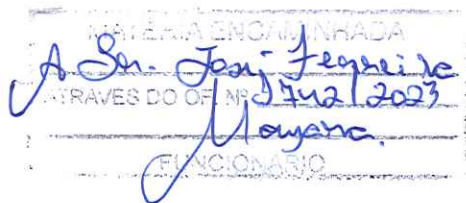 MATÉRIA ENCAMINHADA
A Sr. José Ferreira
ATRAVES DO OF. Nº 1742/2023
Mayara.
FUNCIONÁRIO